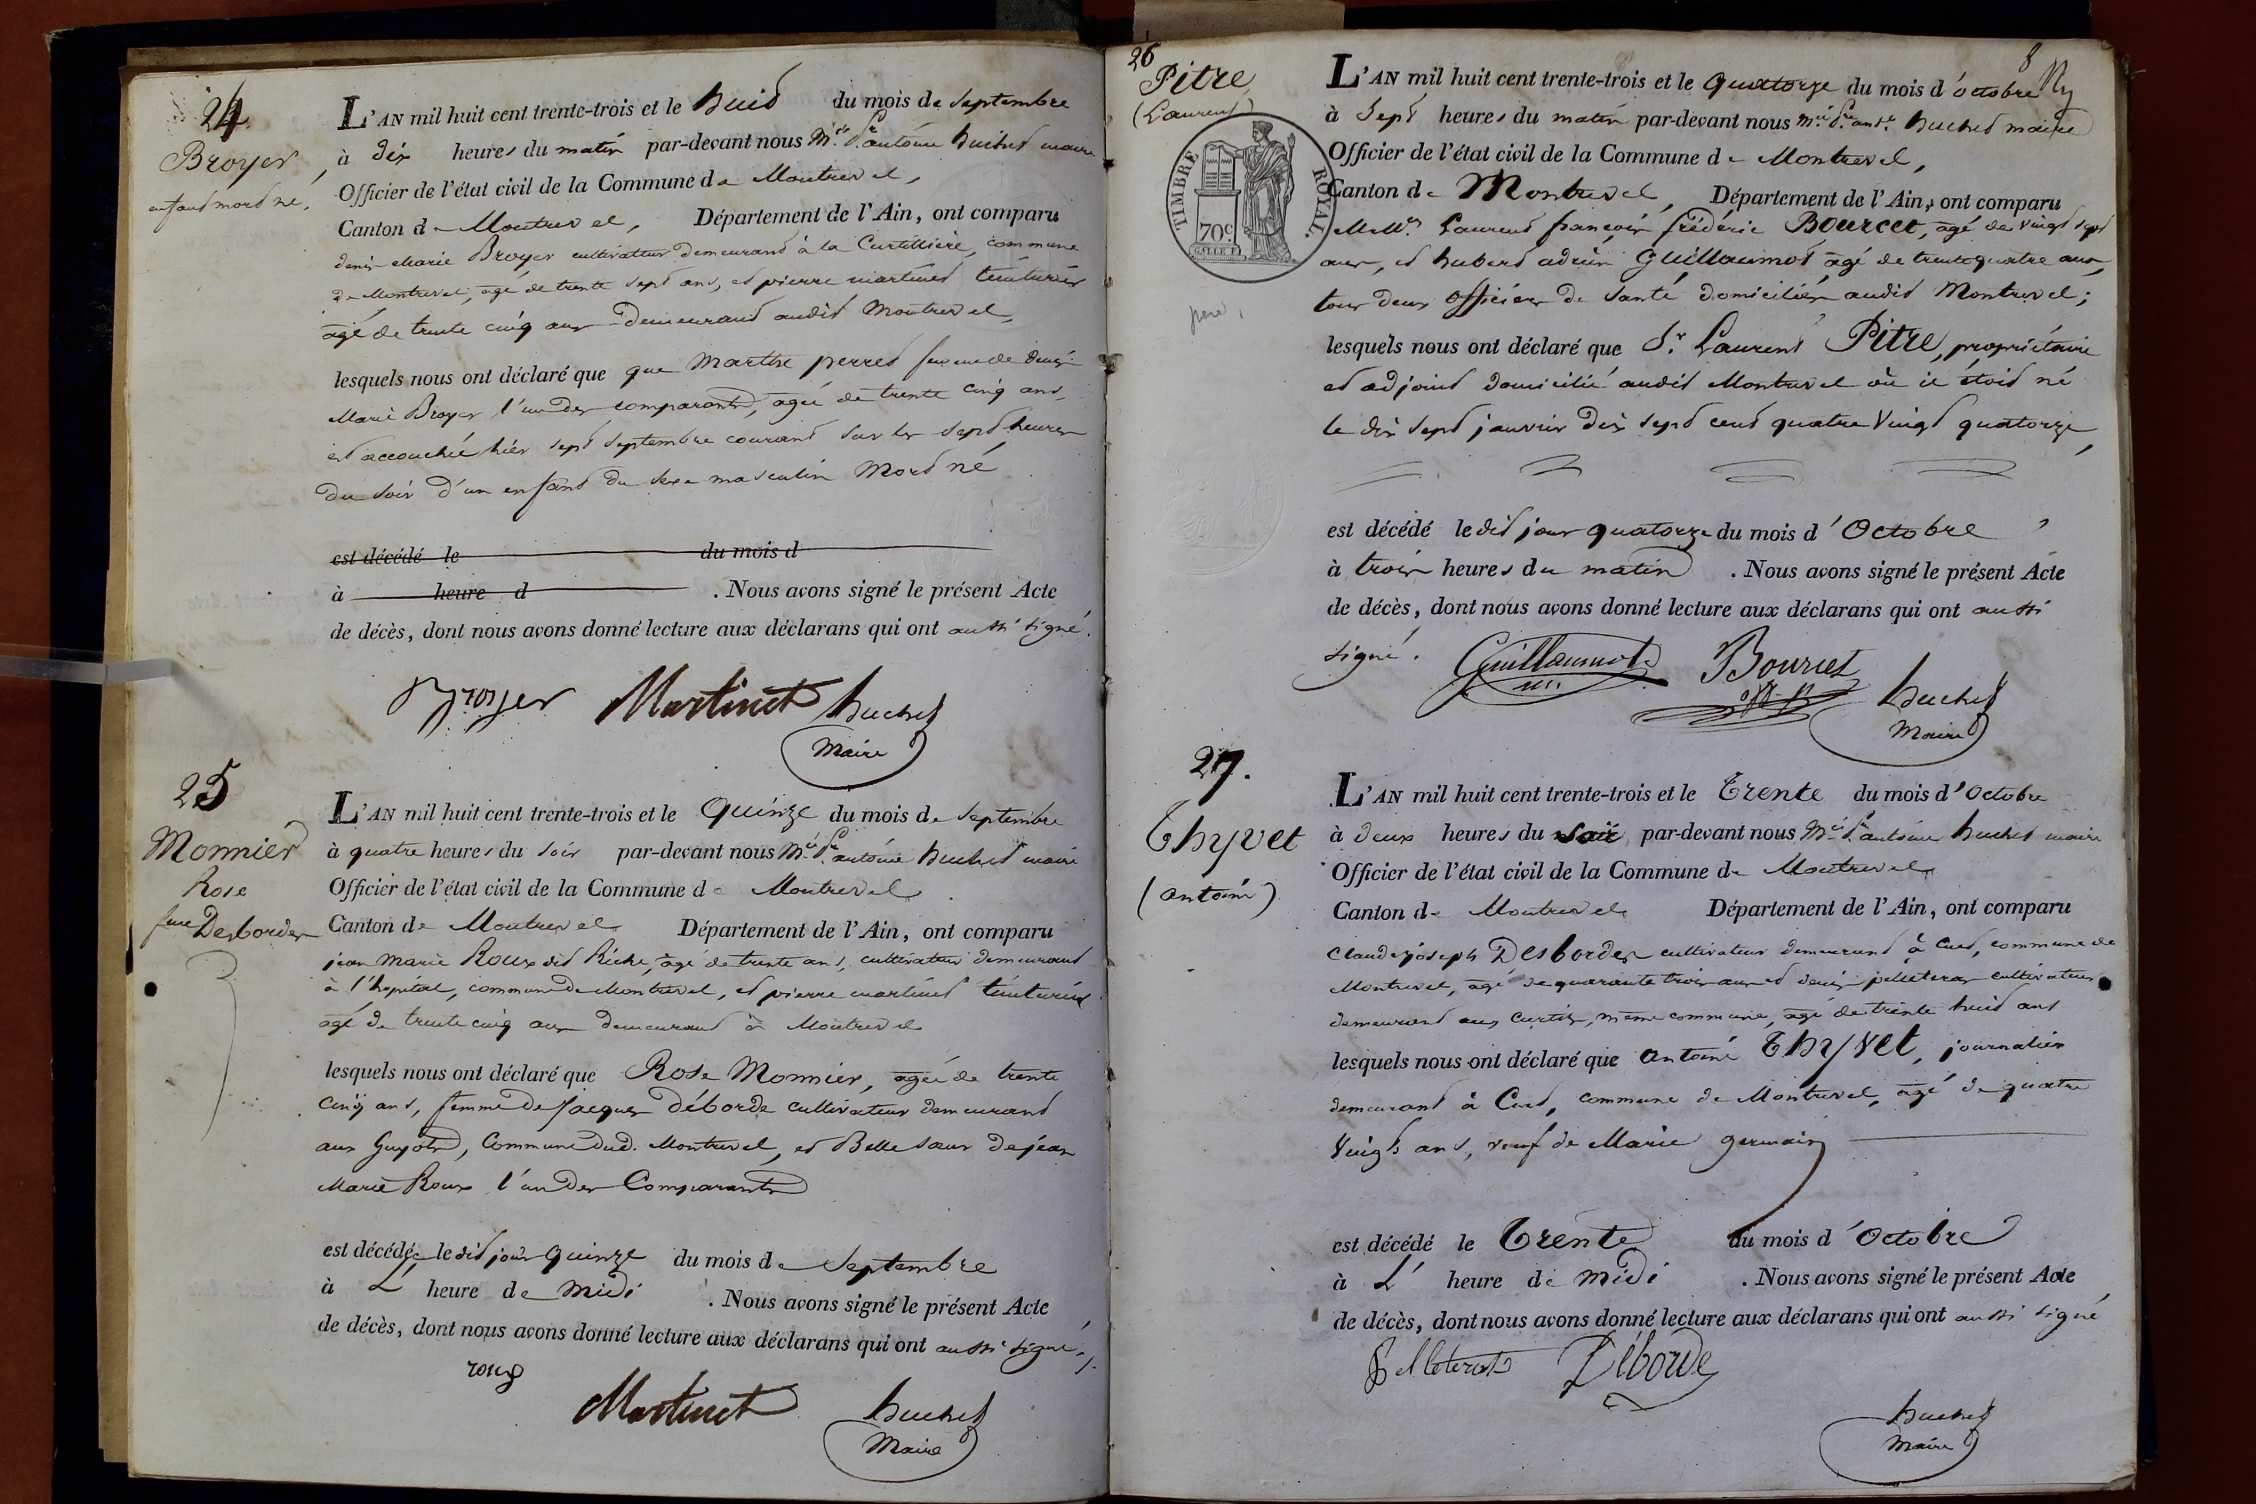 24.
Broyer,
enfant mort né.
L'AN mil huit cent trente-trois et le huit du mois de septembre
à dix heures du matin par-devant nous Mie Pre antoine huchet maire
Officier de l'état civil de la Commune de Montrevel,
Canton de Montrevel, Département de l'Ain, ont comparu
denis Marie Broyer cultivateur demeurant à la Curtillière, commune
de Montrevel, agé de trente sept ans, et pierre martinet teinturier
agé de trente cinq ans demeurant audit Montrevel,
lesquels nous ont déclaré que que Marthe perret femme de denis
Marie Broyer l'un des comparants, agée de trente cinq ans,
est accouchée hier sept septembre courant sur les sept heures
du soir d'un enfant du sexe masculin Mort né
est décédé le du mois d
à heure d . Nous avons signé le présent Acte
de décès, dont nous avons donné lecture aux déclarans qui ont aussi signé.
Broyer Martinet huchet
Maire
25
Monnier
Rose
fme Desbordes
L'AN mil huit cent trente-trois et le Quinze du mois de septembre
à quatre heures du soir par-devant nous Mie Pre antoine huchet maire
Officier de l'état civil de la Commune de Montrevel
Canton de Montrevel Département de l'Ain, ont comparu
jean marie Roux dit Riche, agé de trente ans, cultivateur demeurant
à l'hopital, commune de Montrevel, et pierre martinet teinturier
agé de trente cinq ans demeurant à Montrevel
lesquels nous ont déclaré que Rose Monnier, agée de trente
cinq ans, femme de Jacques Déborde cultivateur demeurant
aux Guyots, Commune dud. Montrevel, et Belle sœur de jean
Marie Roux l'un des Comparants
est décédée ledit jour quinze du mois de septembre
à L' heure de midi . Nous avons signé le présent Acte
de décès, dont nous avons donné lecture aux déclarans qui ont aussi signé.
roux
Martinet huchet
Maire
26
Pitre
(Laurent)
TIMBRE ROYAL.
70c.
8
L'AN mil huit cent trente-trois et le Quatorze du mois d'octobre
à Sept heures du matin par-devant nous Mie Pre ante huchet maire
Officier de l'état civil de la Commune de Montrevel,
Canton de Montrevel, Département de l'Ain, ont comparu
M.Mrs Laurent françois frédéric Bourcet, agé de vingt sept
ans, et hubert adrien Guillaumot agé de trente quatre ans,
tous deux officiers de santé domiciliés audit Montrevel;
lesquels nous ont déclaré que Sr Laurent Pitre, propriétaire
et adjoint domicilié audit Montrevel où il étoit né
le dix sept janvier dix sept cent quatre vingt quatorze,
est décédé ledit jour quatorze du mois d'Octobre
à trois heures du matin . Nous avons signé le présent Acte
de décès, dont nous avons donné lecture aux déclarans qui ont aussi
signé. Guillaumot Bourcet huchet
Maire
27.
Thyvet
(antoine)
L'AN mil huit cent trente-trois et le Trente du mois d'Octobre
à deux heures du soir par-devant nous Mie Pre antoine huchet maire
Officier de l'état civil de la Commune de Montrevel
Canton de Montrevel Département de l'Ain, ont comparu
Claude joseph Desbordes cultivateur demeurant à Cuet, commune de
Montrevel, agé de quarante trois ans et denis pelleteras cultivateur
demeurant aux Curtils, même commune, agé de trente huit ans
lesquels nous ont déclaré que antoine Thyvet, journalier
demeurant à Cuet, commune de Montrevel, agé de quatre
vingts ans, veuf de Marie germain
est décédé le Trente du mois d'Octobre
à L' heure de midi . Nous avons signé le présent Acte
de décès, dont nous avons donné lecture aux déclarans qui ont aussi signé
Déborde
huchet
Maire